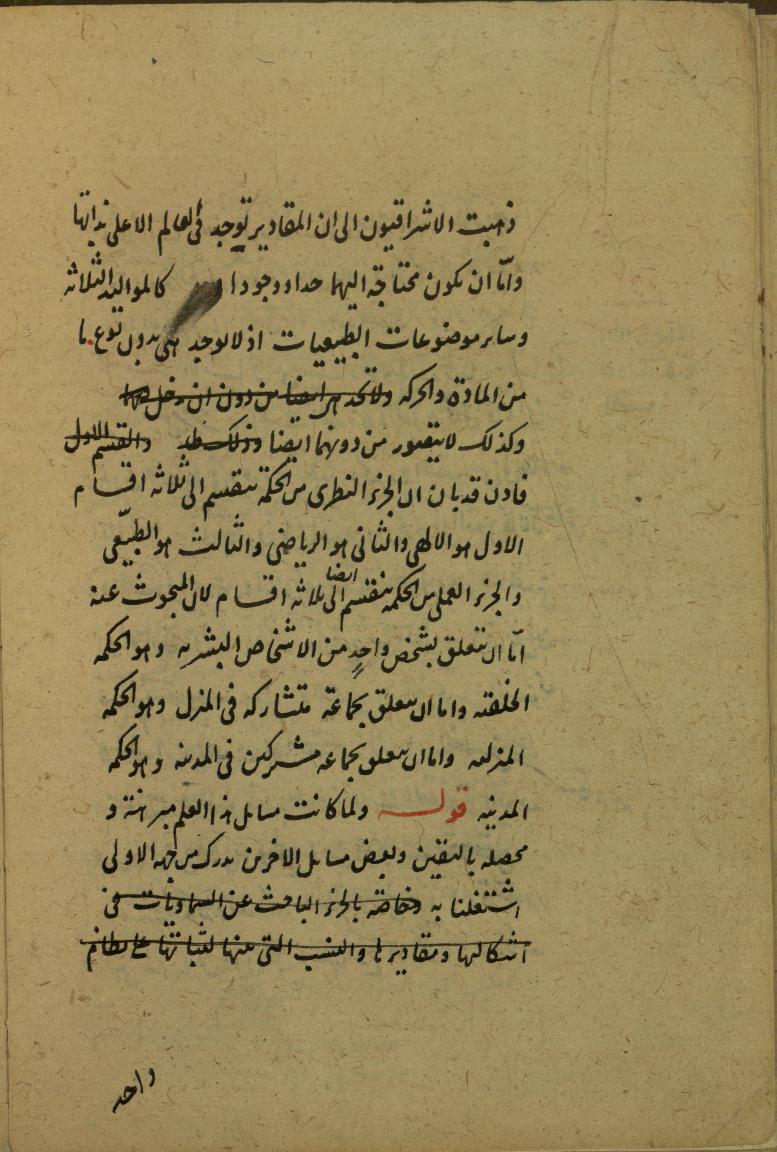 ذهبت الاشراقيون الى ان المقادير توجد فى العالم الاعلى بذاتها
وامّا ان تكون محتاجة اليها حدا ووجودا كالمواليد الثلاثة
وساير موضوعات الطبيعيات اذ لا توجد هى بدون نوع ما
من المادة والحركة ولا تحد هى ايضا من دون ان دخل فيها
وكذلك لا يتصور من دونهما ايضا وذلك والقسم الاول
فاذن قد بان ان الجزء النظرى من الحكمة ينقسم الى ثلاثة اقسام
الاول هو الالهى والثانى هو الرياضى والثالث هو الطبيعى
والجزء العملى من الحكمة ينقسم ايضا الى ثلاثة اقسام لان المبحوث عنه
امّا ان يتعلق بشخص واحد من الاشخاص البشرية وهو الحكمة
الخلقية واما ان يتعلق بجماعة متشاركة فى المنزل وهو الحكمة
المنزلية واما ان يتعلق بجماعة مشتركين فى المدينة وهو الحكمة
المدنية قوله ولما كانت مسايل هذا العلم مبرهنة و
محصلة باليقين وبعض مسايل الاخرين يدرك من جهة الاولى
اشتغلنا به وخاصة بالجزء الباحث عن السماويات فى
اشكالها ومقاديرها والنسب التى منها لثباتها على نظام
واحد